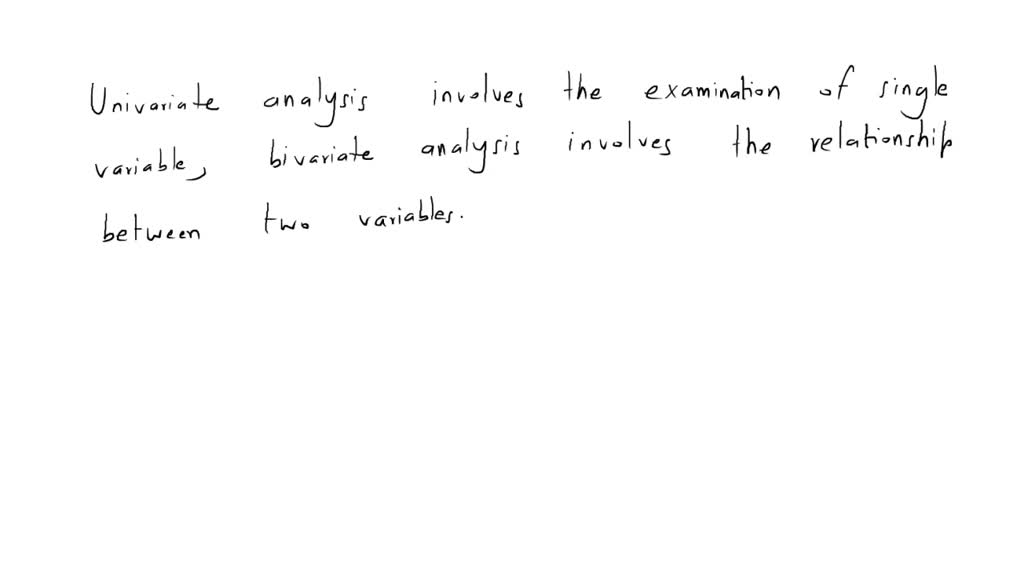 Univariate analysis involves the examination of single
variable, bivariate analysis involves the relationship
between two variables.